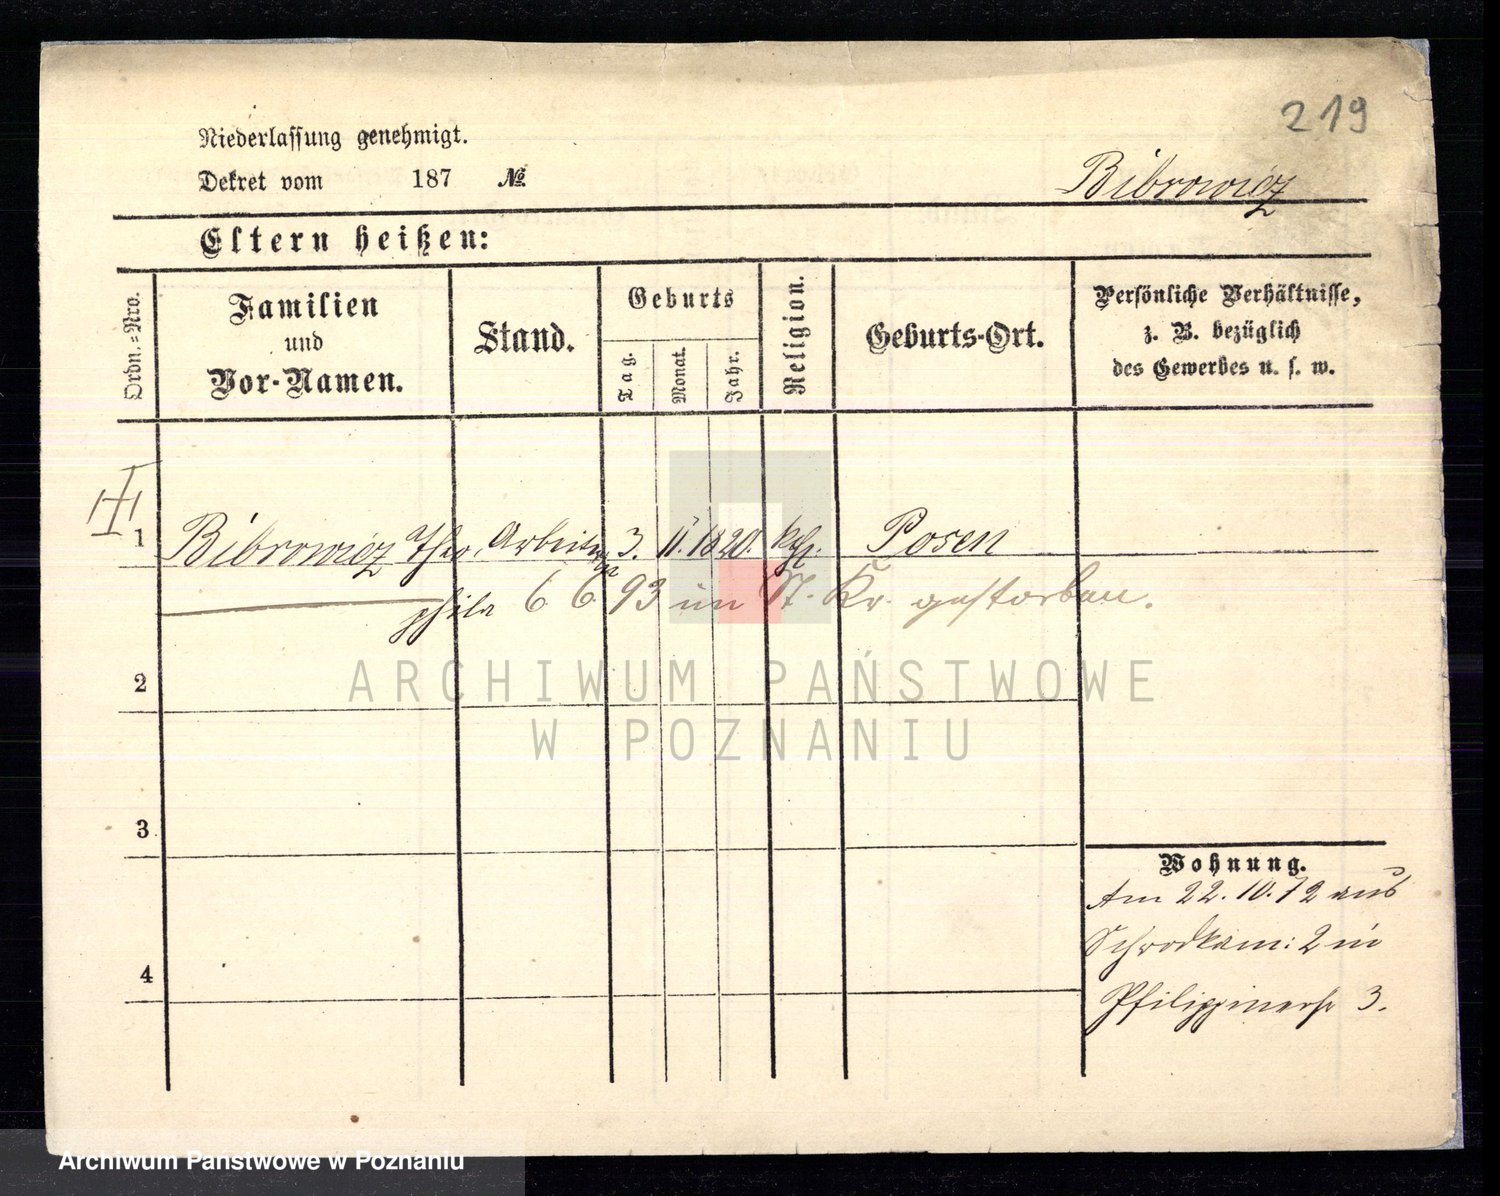 219
Niederlassung genehmigt.
Dekret vom 187 №
Bibrowicz
Eltern heißen:
Ordn.=Nro.
Familien
und
Vor-Namen.
Stand.
Geburts
Tag.
Monat.
Jahr.
Religion.
Geburts-Ort.
Persönliche Verhältnisse,
z. B. bezüglich
des Gewerbes u. s. w.
1 Bibrowicz Theo Arbeiter 3. 11. 1820. kth. Posen
phila 6 6 93 im St. Kr. gestorben.
2
3
4
Wohnung.
Am 22. 10. 72 aus
Schrodkam: 2 in
Philippinerstr 3.
ARCHIWUM PAŃSTWOWE
W POZNANIU
Archiwum Państwowe w Poznaniu